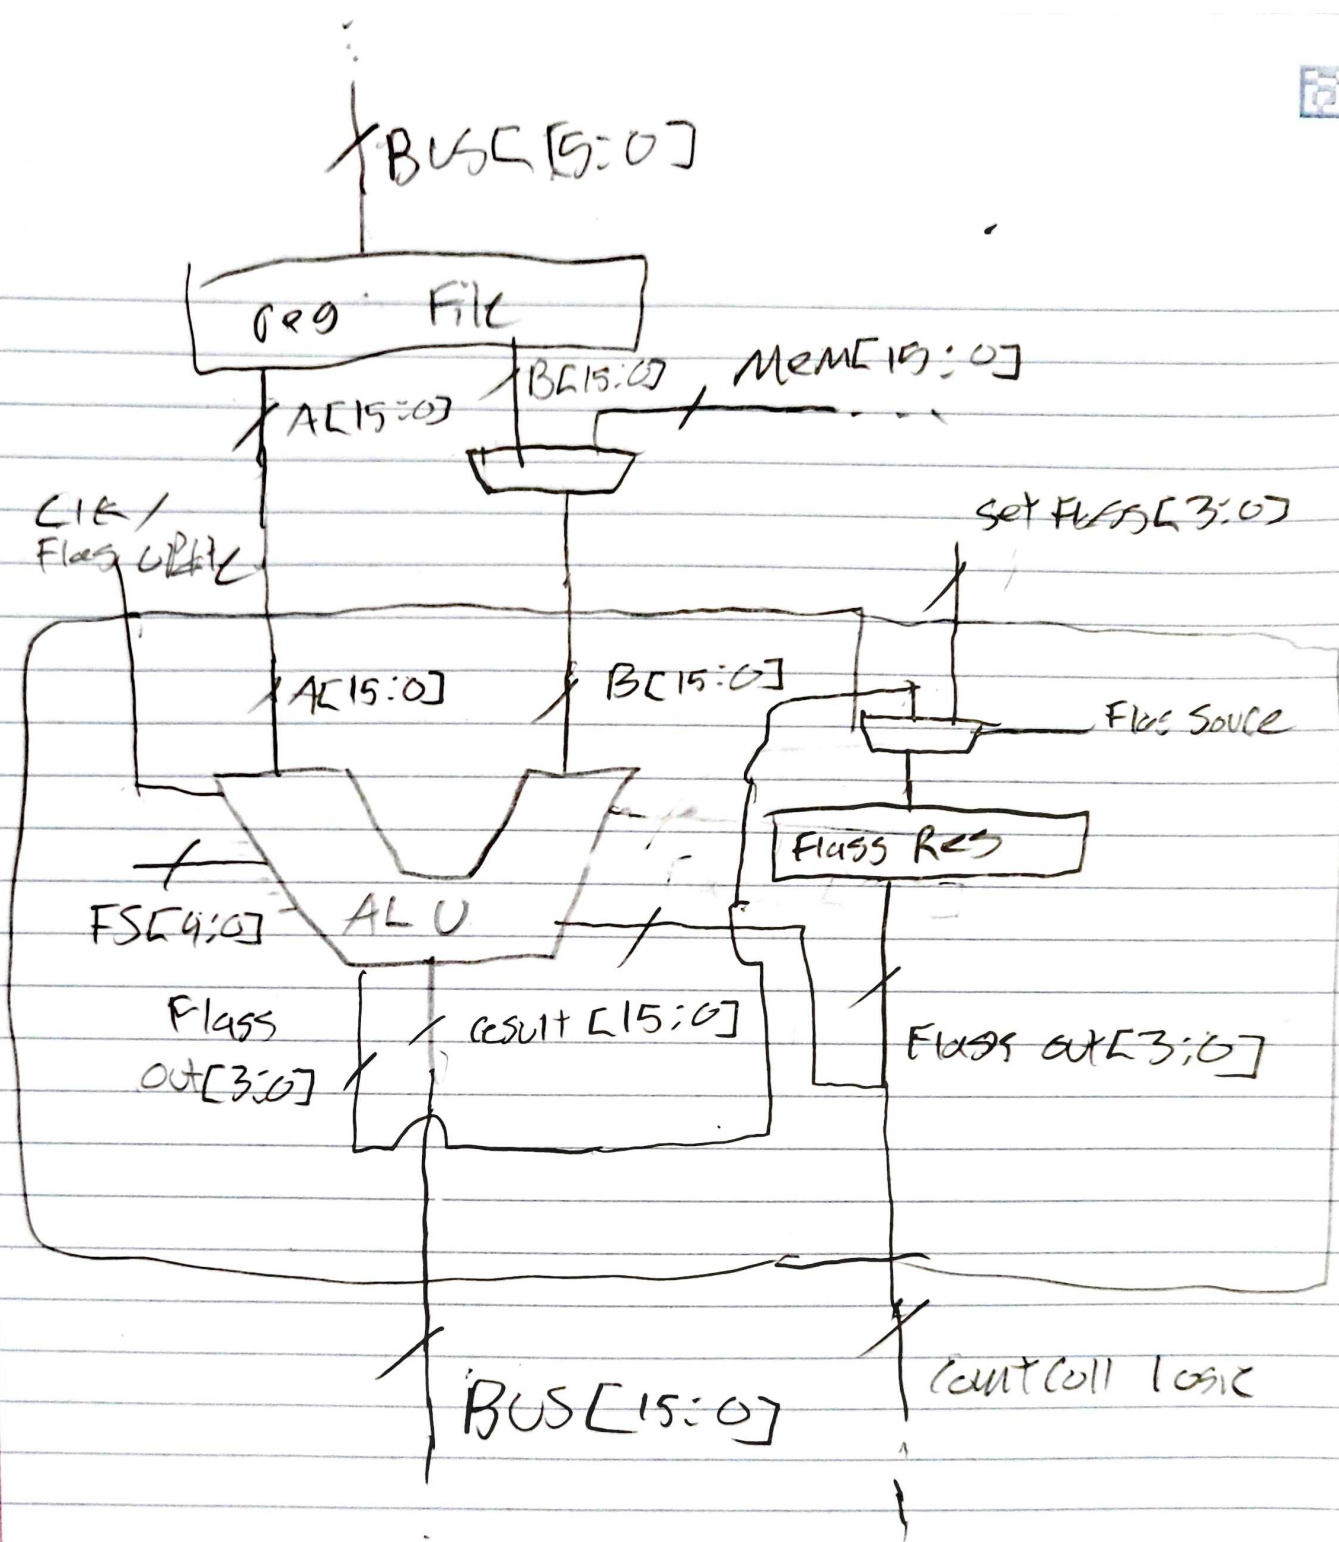 BUS[15:0]
reg File
MeM[15:0]
B[15:0]
A[15:0]
Clk/
Flag
set Flags[3:0]
A[15:0]
B[15:0]
Flag Souce
Flags Reg
ALU
FS[4:0]
Flags
out[3:0]
result[15:0]
Flags out[3:0]
BUS[15:0]
logic